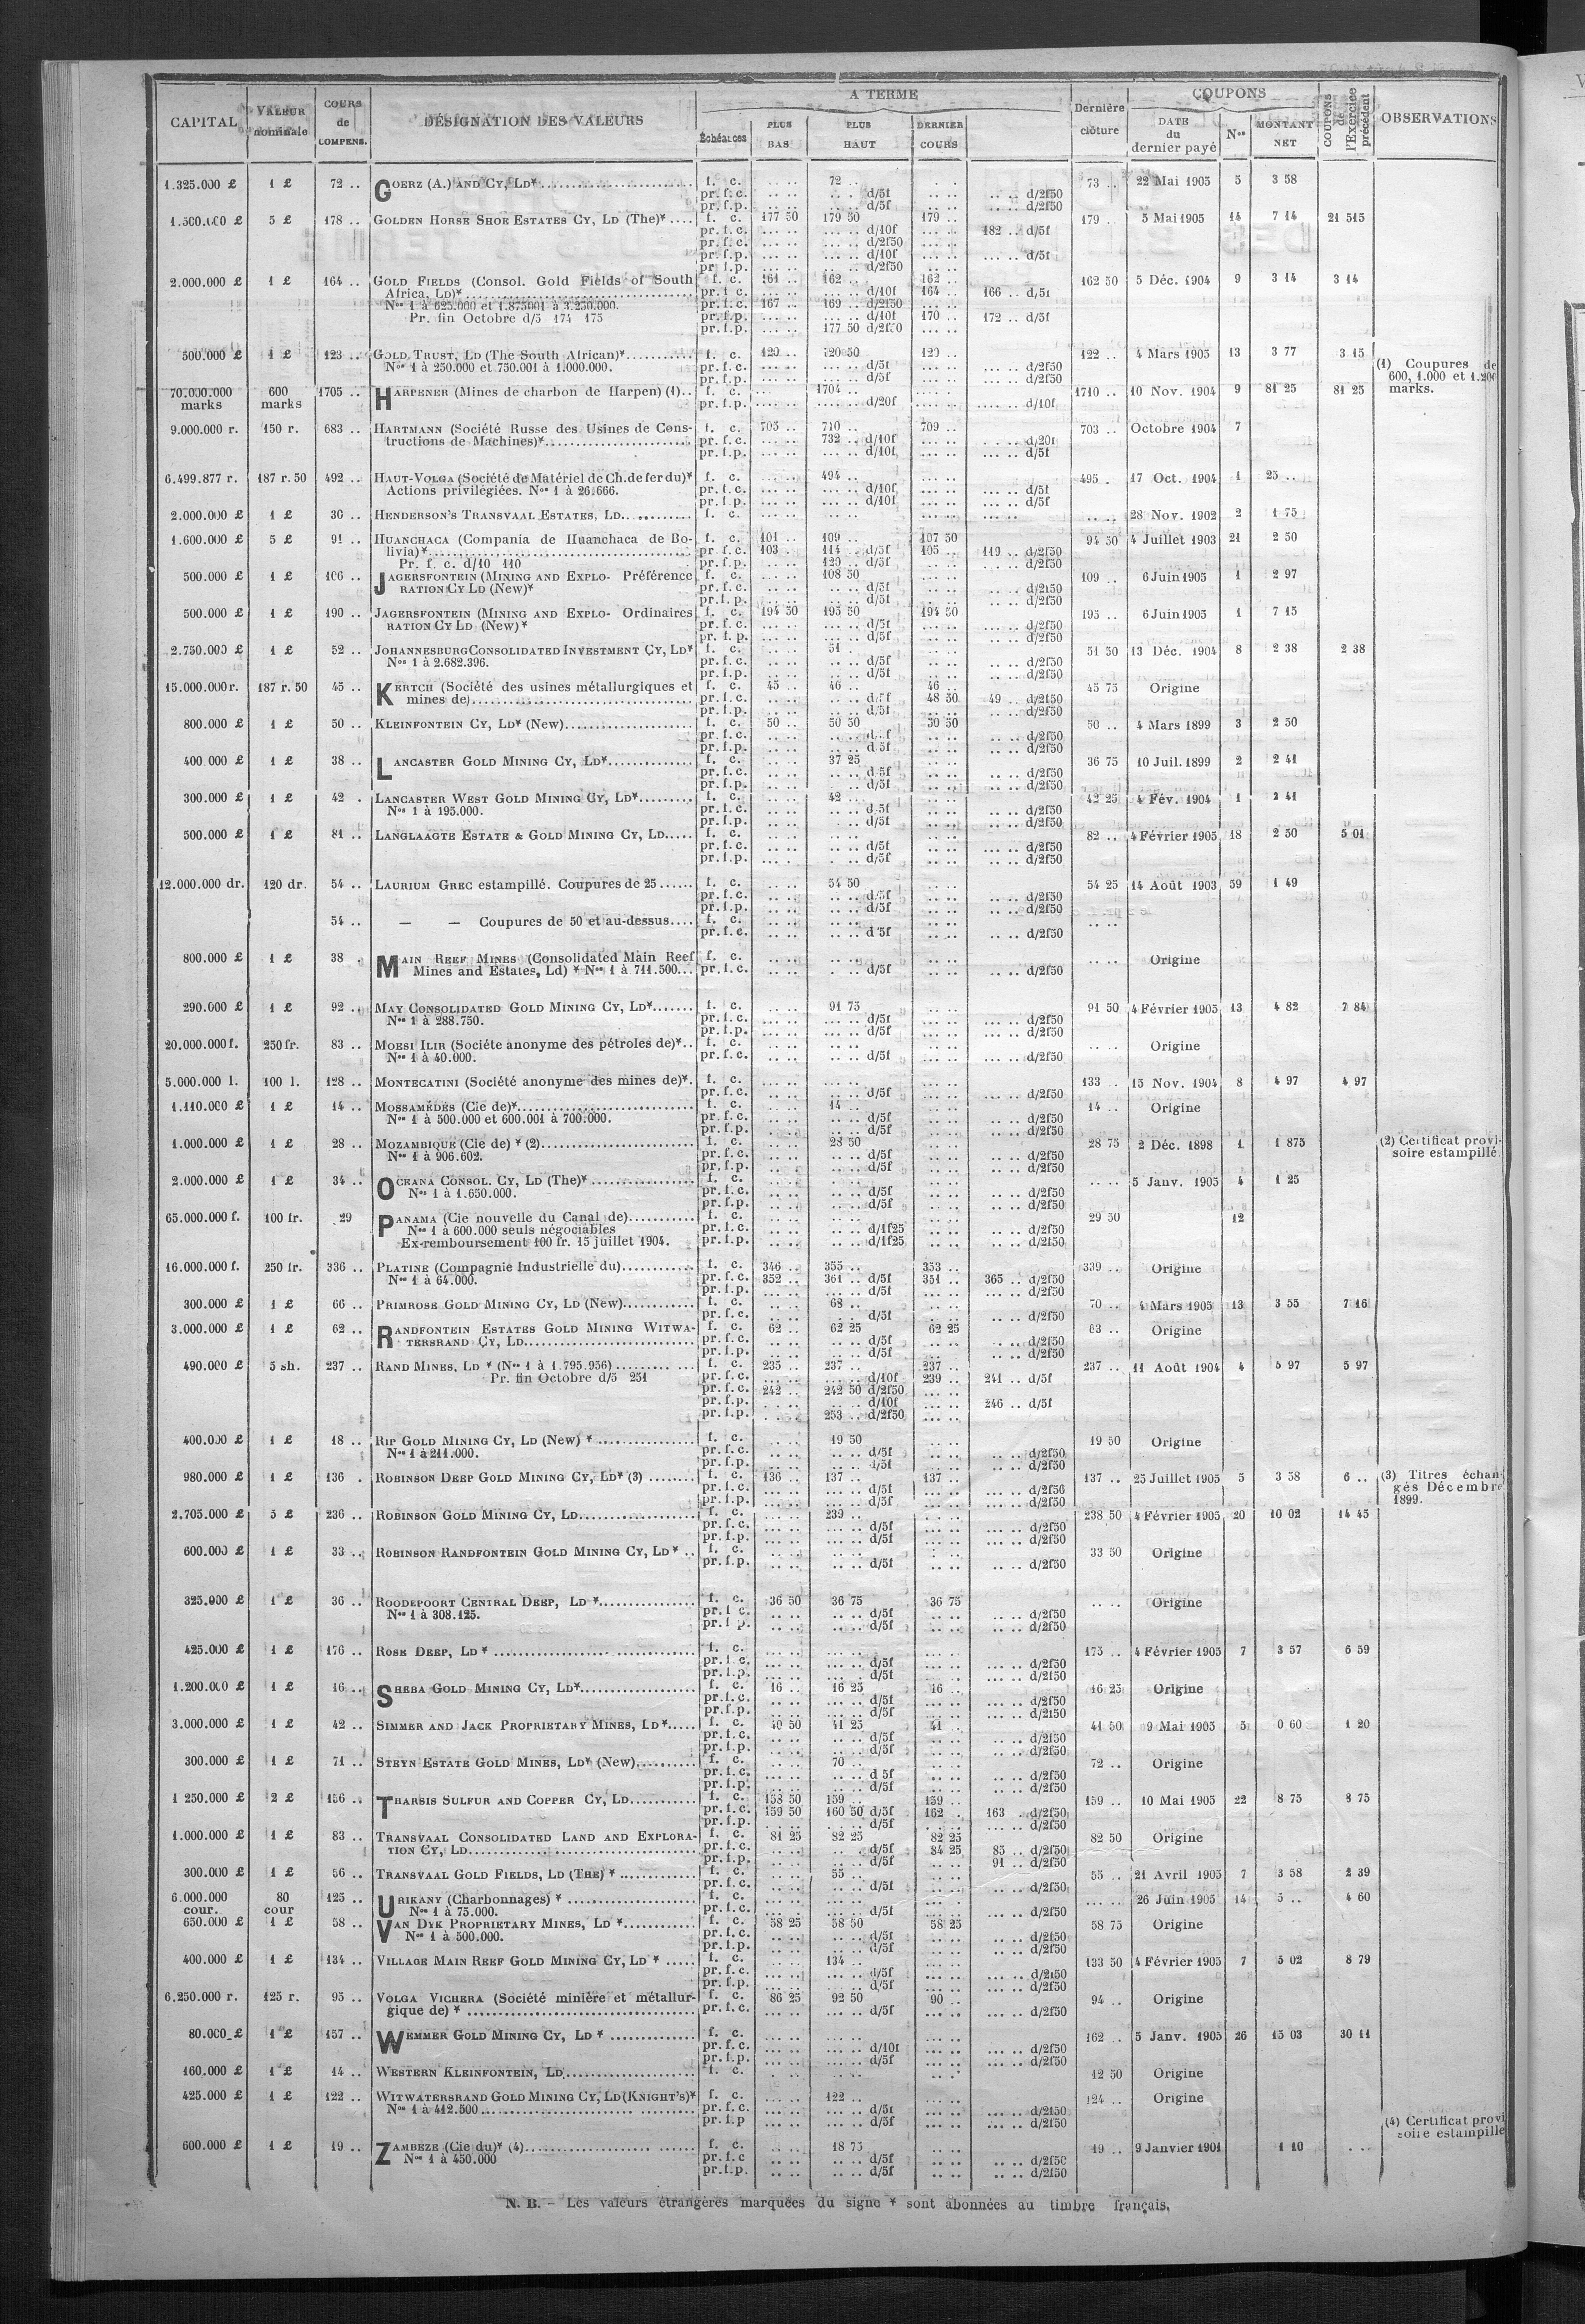 CAPITAL VALEUR nominale COURS de COMPENS. DÉSIGNATION DES VALEURS A TERME Échéances PLUS BAS PLUS HAUT DERNIER COURS Dernière clôture COUPONS DATE du dernier payé Nos MONTANT NET COUPONS de l'Exercice précédent OBSERVATIONS
1.325.000 £ 1 £ 72 .. GOERZ (A.) AND CY, LD* f. c. .. .. 72 .. .. .. 73 .. 22 Mai 1905 5 3 58
pr. f. c. .. .. .. .. d/5f .. .. .. .. d/2f50
pr. f. p. .. .. .. .. d/5f .. .. .. .. d/2f50
1.500.000 £ 5 £ 178 .. GOLDEN HORSE SHOE ESTATES CY, LD (The)* f. c. 177 50 179 50 179 .. 179 .. 5 Mai 1905 14 7 14 21 515
pr. f. c. ... .. ... .. d/10f ... .. 182 .. d/5f
pr. f. c. ... .. ... .. d/2f50 ... ..
pr. f. p. ... .. ... .. d/10f ... .. ... .. d/5f
pr. f. p. ... .. ... .. d/2f50 .. ..
2.000.000 £ 1 £ 164 .. GOLD FIELDS (Consol. Gold Fields of South f. c. 161 .. 162 .. 162 .. 162 50 5 Déc. 1904 9 3 14 3 14
Africa, LD)* pr. f. c. ... .. ... .. d/10f 164 .. 166 .. d/5f
Nos 1 à 625.000 et 1.875001 à 3.250.000. pr. f. c. 167 .. 169 .. d/2f50 ... ..
Pr. fin Octobre d/5 174 175 pr. f. p. ... .. ... .. d/10f 170 .. 172 .. d/5f
pr. f. p. ... .. 177 50 d/2f50 ... ..
500.000 £ 1 £ 123 .. GOLD TRUST, LD (The South African)* f. c. 120 .. 120 50 120 .. 122 .. 4 Mars 1905 13 3 77 3 15 (1) Coupures de
Nos 1 à 250.000 et 750.001 à 1.000.000. pr. f. c. ... .. ... .. d/5f ... .. ... .. d/2f50 600, 1.000 et 1.200
pr. f. p. ... .. ... .. d/5f ... .. ... .. d/2f50 marks.
70.000.000 600 1705 .. HARPENER (Mines de charbon de Harpen) (1).. f. c. .... .. 1704 .. .... .. 1710 .. 10 Nov. 1904 9 81 25 81 25
marks marks pr. f. p. .... .. .... .. d/20f .... .. .... .. d/10f
9.000.000 r. 150 r. 683 .. HARTMANN (Société Russe des Usines de Cons- f. c. 705 .. 710 .. 709 .. 703 .. Octobre 1904 7
tructions de Machines)* pr. f. c. ... .. 732 .. d/10f ... .. ... .. d/20f
pr. f. p. ... .. ... .. d/10f ... .. ... .. d/5f
6.499.877 r. 187 r. 50 492 .. HAUT-VOLGA (Société de Matériel de Ch. de fer du)* f. c. ... .. 494 .. ... .. 495 . 17 Oct. 1904 1 25 ..
Actions privilégiées. Nos 1 à 26.666. pr. f. c. ... .. ... .. d/10f ... .. ... .. d/5f
pr. f. p. ... .. ... .. d/10f ... .. ... .. d/5f
2.000.000 £ 1 £ 30 .. HENDERSON'S TRANSVAAL ESTATES, LD f. c. ... .. ... .. ... .. ... .. .. .. 28 Nov. 1902 2 1 75
1.600.000 £ 5 £ 91 .. HUANCHACA (Compania de Huanchaca de Bo- f. c. 101 .. 109 .. 107 50 94 50 4 Juillet 1903 21 2 50
livia)* pr. f. c. 103 . 114 .. d/5f 105 .. 119 .. d/2f50
Pr. f. c. d/10 110 pr. f. p. .. .. 120 .. d/5f .. .. .. .. d/2f50
500.000 £ 1 £ 106 .. JAGERSFONTEIN (MINING AND EXPLO- Préférence f. c. .. .. 108 50 .. .. 109 .. 6 Juin 1905 1 2 97
RATION CY LD (New)* pr. f. c. .. .. .. .. d/5f .. .. .. .. d/2f50
pr. f. p. .. .. .. .. d/5f .. .. .. .. d/2f50
500.000 £ 1 £ 190 .. JAGERSFONTEIN (MINING AND EXPLO- Ordinaires f. c. 194 50 195 50 194 50 195 .. 6 Juin 1905 1 7 15
RATION CY LD (New)* pr. f. c. ... .. ... .. d/5f ... .. ... .. d/2f50
pr. f. p. ... .. ... .. d/5f ... .. ... .. d/2f50
2.750.000 £ 1 £ 52 .. JOHANNESBURG CONSOLIDATED INVESTMENT CY, LD* f. c. .. .. 51 . .. .. 51 50 13 Déc. 1904 8 2 38 2 38
Nos 1 à 2.682.396. pr. f. c. .. .. .. .. d/5f .. .. .. .. d/2f50
pr. f. p. .. .. .. .. d/5f .. .. .. .. d/2f50
15.000.000 r. 187 r. 50 45 .. KERTCH (Société des usines métallurgiques et f. c. 45 .. 46 .. 46 .. 45 75 Origine
mines de) pr. f. c. .. .. .. .. d/5f 48 50 49 .. d/2f50
pr. f. p. .. .. .. .. d/5f .. .. .. .. d/2f50
800.000 £ 1 £ 50 .. KLEINFONTEIN CY, LD* (New) f. c. 50 .. 50 50 50 50 50 .. 4 Mars 1899 3 2 50
pr. f. c. .. .. .. .. d/5f .. .. .. .. d/2f50
pr. f. p. .. .. .. .. d/5f .. .. .. .. d/2f50
400.000 £ 1 £ 38 .. LANCASTER GOLD MINING CY, LD* f. c. .. .. 37 25 .. .. 36 75 10 Juil. 1899 2 2 41
pr. f. c. .. .. .. .. d/5f .. .. .. .. d/2f50
pr. f. p. .. .. .. .. d/5f .. .. .. .. d/2f50
300.000 £ 1 £ 42 . LANCASTER WEST GOLD MINING CY, LD* f. c. .. .. 42 .. .. .. 42 25 4 Fév. 1904 1 2 41
Nos 1 à 195.000. pr. f. c. .. .. .. .. d/5f .. .. .. .. d/2f50
pr. f. p. .. .. .. .. d/5f .. .. .. .. d/2f50
500.000 £ 1 £ 81 .. LANGLAAGTE ESTATE & GOLD MINING CY, LD f. c. .. .. .. .. .. .. 82 .. 4 Février 1905 18 2 50 5 01
pr. f. c. .. .. .. .. d/5f .. .. .. .. d/2f50
pr. f. p. .. .. .. .. d/5f .. .. .. .. d/2f50
12.000.000 dr. 120 dr. 54 .. LAURIUM GREC estampillé. Coupures de 25 f. c. .. .. 54 50 .. .. 54 25 14 Août 1903 59 1 49
pr. f. c. .. .. .. .. d/5f .. .. .. .. d/2f50
pr. f. p. .. .. .. .. d/5f .. .. .. .. d/2f50
54 .. — — Coupures de 50 et au-dessus f. c. .. .. .. .. .. .. .. ..
pr. f. c. .. .. .. .. d/5f .. .. .. .. d/2f50
800.000 £ 1 £ 38 . MAIN REEF MINES (Consolidated Main Reef f. c. .. .. .. .. .. .. .. .. Origine
Mines and Estates, Ld) * Nos 1 à 711.500 pr. f. c. .. .. .. .. d/5f .. .. .. d/2f50
290.000 £ 1 £ 92 .. MAY CONSOLIDATED GOLD MINING CY, LD* f. c. ... .. 91 75 .. .. 91 50 4 Février 1905 13 4 82 7 84
Nos 1 à 288.750. pr. f. c. ... .. ... .. d/5f ... .. ... .. d/2f50
pr. f. p. ... .. ... .. d/5f ... .. ... .. d/2f50
20.000.000 f. 250 fr. 83 .. MOESI ILIR (Sociéte anonyme des pétroles de)* f. c. .. .. .. .. .. .. .. .. Origine
Nos 1 à 40.000. pr. f. c. ... .. ... .. d/5f ... .. ... .. d/2f50
5.000.000 l. 100 l. 128 .. MONTECATINI (Société anonyme des mines de)*. f. c. ... .. ... .. ... .. 133 .. 15 Nov. 1904 8 4 97 4 97
pr. f. c. ... .. ... .. d/5f ... .. ... .. d/2f50
1.110.000 £ 1 £ 14 .. MOSSAMÉDÈS (Cie de)* f. c. .. .. 14 .. .. .. 14 .. Origine
Nos 1 à 500.000 et 600.001 à 700.000. pr. f. c. .. .. .. .. d/5f .. .. .. .. d/2f50
pr. f. p. .. .. .. .. d/5f .. .. .. .. d/2f50
1.000.000 £ 1 £ 28 .. MOZAMBIQUE (Cie de) * (2) f. c. .. .. 28 50 .. .. 28 75 2 Déc. 1898 1 1 875 (2) Certificat provi-
Nos 1 à 906.602. pr. f. c. .. .. .. .. d/5f .. .. .. .. d/2f50 soire estampillé.
pr. f. p. .. .. .. .. d/5f .. .. .. .. d/2f50
2.000.000 £ 1 £ 34 .. OCEANA CONSOL. CY, LD (The)* f. c. .. .. .. .. .. .. .. .. 5 Janv. 1905 4 1 25
Nos 1 à 1.650.000. pr. f. c. .. .. .. .. d/5f .. .. .. .. d/2f50
pr. f. p. .. .. .. .. d/5f .. .. .. .. d/2f50
65.000.000 f. 100 fr. 29 PANAMA (Cie nouvelle du Canal de) f. c. .. .. .. .. .. .. 29 50 12
Nos 1 à 600.000 seuls négociables pr. f. c. .. .. .. .. d/1f25 .. .. .. .. d/2f50
Ex-remboursement 100 fr. 15 juillet 1904. pr. f. p. .. .. .. .. d/1f25 .. .. .. .. d/2f50
16.000.000 f. 250 fr. 336 .. PLATINE (Compagnie Industrielle du) f. c. 346 .. 355 .. 353 .. 339 .. Origine
Nos 1 à 64.000. pr. f. c. 352 .. 361 .. d/5f 351 .. 365 .. d/2f50
pr. f. p. ... .. ... .. d/5f ... .. ... .. d/2f50
300.000 £ 1 £ 66 .. PRIMROSE GOLD MINING CY, LD (New) f. c. .. .. 68 .. .. .. 70 .. 4 Mars 1905 13 3 55 7 16
pr. f. c. .. .. .. .. d/5f .. .. .. .. d/2f50
3.000.000 £ 1 £ 62 .. RANDFONTEIN ESTATES GOLD MINING WITWA- f. c. 62 .. 62 25 62 25 63 .. Origine
TERSRAND CY, LD pr. f. c. .. .. .. .. d/5f .. .. .. .. d/2f50
pr. f. p. .. .. .. .. d/5f .. .. .. .. d/2f50
490.000 £ 5 sh. 237 .. RAND MINES, LD * (Nos 1 à 1.795.956) f. c. 235 .. 237 .. 237 .. 237 .. 11 Août 1904 4 5 97 5 97
Pr. fin Octobre d/5 251 pr. f. c. ... .. ... .. d/10f 239 .. 241 .. d/5f
pr. f. c. 242 .. 242 50 d/2f50 ... ..
pr. f. p. ... .. ... .. d/10f ... .. 246 .. d/5f
pr. f. p. ... .. 253 .. d/2f50 ... ..
400.000 £ 1 £ 18 .. RIP GOLD MINING CY, LD (New) * f. c. .. .. 19 50 .. .. 19 50 Origine
Nos 1 à 211.000. pr. f. c. .. .. .. .. d/5f .. .. .. .. d/2f50
pr. f. p. .. .. .. .. d/5f .. .. .. .. d/2f50
980.000 £ 1 £ 136 . ROBINSON DEEP GOLD MINING CY, LD* (3) f. c. 136 .. 137 .. 137 .. 137 .. 25 Juillet 1905 5 3 58 6 .. (3) Titres échan-
pr. f. c. ... .. ... .. d/5f ... .. ... .. d/2f50 gés Décembre
pr. f. p. ... .. ... .. d/5f ... .. ... .. d/2f50 1899.
2.705.000 £ 5 £ 236 .. ROBINSON GOLD MINING CY, LD f. c. ... .. 239 .. ... .. 238 50 4 Février 1905 20 10 02 14 45
pr. f. c. ... .. ... .. d/5f ... .. ... .. d/2f50
pr. f. p. ... .. ... .. d/5f ... .. ... .. d/2f50
600.000 £ 1 £ 33 .. ROBINSON RANDFONTEIN GOLD MINING CY, LD * f. c. .. .. .. .. .. .. 33 50 Origine
pr. f. p. .. .. .. .. d/5f .. .. .. .. d/2f50
325.000 £ 1 £ 36 .. ROODEPOORT CENTRAL DEEP, LD * f. c. 36 50 36 75 36 75 .. .. Origine
Nos 1 à 308.125. pr. f. c. .. .. .. .. d/5f .. .. .. .. d/2f50
pr. f. p. .. .. .. .. d/5f .. .. .. .. d/2f50
425.000 £ 1 £ 176 .. ROSE DEEP, LD * f. c. ... .. ... .. ... .. 175 .. 4 Février 1905 7 3 57 6 59
pr. f. c. ... .. ... .. d/5f ... .. ... .. d/2f50
pr. f. p. ... .. ... .. d/5f ... .. ... .. d/2f50
1.200.000 £ 1 £ 16 .. SHEBA GOLD MINING CY, LD* f. c. 16 .. 16 25 16 .. 16 25 Origine
pr. f. c. .. .. .. .. d/5f .. .. .. .. d/2f50
pr. f. p. .. .. .. .. d/5f .. .. .. .. d/2f50
3.000.000 £ 1 £ 42 .. SIMMER AND JACK PROPRIETARY MINES, LD* f. c. 40 50 41 25 41 .. 41 50 9 Mai 1905 5 0 60 1 20
pr. f. c. .. .. .. .. d/5f .. .. .. .. d/2f50
pr. f. p. .. .. .. .. d/5f .. .. .. .. d/2f50
300.000 £ 1 £ 71 .. STEYN ESTATE GOLD MINES, LD* (New) f. c. .. .. 70 .. .. .. 72 .. Origine
pr. f. c. .. .. .. .. d 5f .. .. .. .. d/2f50
pr. f. p. .. .. .. .. d/5f .. .. .. .. d/2f50
1 250.000 £ 2 £ 156 .. THARSIS SULFUR AND COPPER CY, LD f. c. 158 50 159 .. 159 .. 159 .. 10 Mai 1905 22 8 75 8 75
pr. f. c. 159 50 160 50 d/5f 162 . 163 . d/2f50
pr. f. p. ... .. ... .. d/5f ... .. ... .. d/2f50
1.000.000 £ 1 £ 83 .. TRANSVAAL CONSOLIDATED LAND AND EXPLORA- f. c. 81 25 82 25 82 25 82 50 Origine
TION CY, LD pr. f. c. .. .. .. .. d/5f 84 25 85 .. d/2f50
pr. f. p. .. .. .. .. d/5f .. .. 91 .. d/2f50
300.000 £ 1 £ 56 .. TRANSVAAL GOLD FIELDS, LD (THE) * f. c. .. .. 55 .. .. .. 55 .. 21 Avril 1905 7 3 58 2 39
pr. f. c. .. .. .. .. d/5f .. .. .. .. d/2f50
6.000.000 80 125 .. URIKANY (Charbonnages) * f. c. ... .. ... .. ... .. ... .. 26 Juin 1905 14 5 .. 4 60
cour. cour Nos 1 à 75.000. pr. f. c. ... .. ... .. d/5f ... .. ... .. d/2f50
650.000 £ 1 £ 58 .. VAN DYK PROPRIETARY MINES, LD * f. c. 58 25 58 50 58 25 58 75 Origine
Nos 1 à 500.000. pr. f. c. .. .. .. .. d/5f .. .. .. .. d/2f50
pr. f. p. .. .. .. .. d/5f .. .. .. .. d/2f50
400.000 £ 1 £ 134 .. VILLAGE MAIN REEF GOLD MINING CY, LD * f. c. ... .. 134 .. ... .. 133 50 4 Février 1905 7 5 02 8 79
pr. f. c. ... .. ... .. d/5f ... .. ... .. d/2f50
pr. f. p. ... .. ... .. d/5f ... .. ... .. d/2f50
6.250.000 r. 125 r. 95 .. VOLGA VICHERA (Société minière et métallur- f. c. 86 25 92 50 90 .. 94 .. Origine
gique de) * pr. f. c. ... .. ... .. d/5f ... .. ... .. d/2f50
80.000 £ 1 £ 157 .. WEMMER GOLD MINING CY, LD * f. c. ... .. ... .. ... .. 162 .. 5 Janv. 1905 26 15 03 30 11
pr. f. c. ... .. ... .. d/10f ... .. ... .. d/2f50
pr. f. p. ... .. ... .. d/5f ... .. ... .. d/2f50
160.000 £ 1 £ 14 .. WESTERN KLEINFONTEIN, LD f. c. .. .. .. .. .. .. 12 50 Origine
425.000 £ 1 £ 122 .. WITWATERSRAND GOLD MINING CY, LD (KNIGHT'S)* f. c. ... .. 122 .. ... .. 124 .. Origine
Nos 1 à 412.500 pr. f. c. ... .. ... .. d/5f ... .. ... .. d/2f50
pr. f. p ... .. ... .. d/5f ... .. ... .. d/2f50 (4) Certificat provi
soire estampillé
600.000 £ 1 £ 19 .. ZAMBÈZE (Cie du)* (4) f. c. .. .. 18 75 .. .. 19 .. 9 Janvier 1901 1 10 . ..
Nos 1 à 450.000 pr. f. c .. .. .. .. d/5f .. .. .. .. d/2f50
pr. f. p. .. .. .. .. d/5f .. .. .. .. d/2f50
N. B. – Les valeurs étrangères marquées du signe * sont abonnées au timbre français.